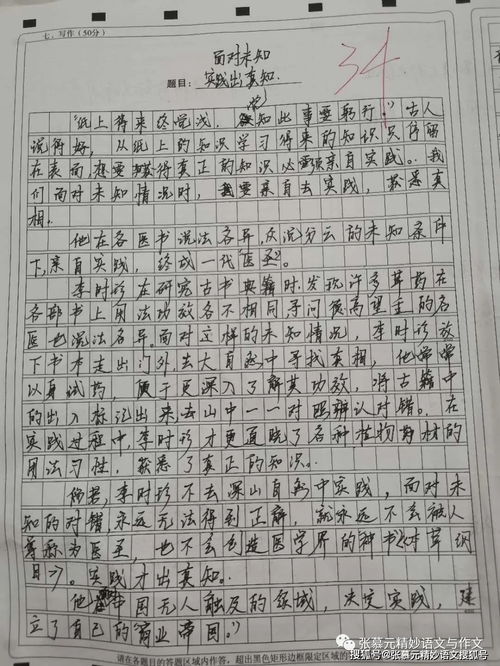 七、写作(50分)
面对未知
题目：实践出真知.
34
"纸上得来终觉浅，绝知此事要躬行。"古人
说得好，从纸上的知识学习得来的知识只停留
在表面，想要获得真正的知识必须亲自实践。我
们面对未知情况时，要亲自去实践，获悉真
相.
他在各医书说法各异，众说纷云的未知条件
下,亲自实践，终成一代"医圣"。
李时珍在研究古书典籍时,发现许多草药在
各部书上用法功效各不相同寻问德高望重的名
医也说法各异。面对这样的未知情况，李时珍放
下书本走出门外,去大自然中寻找真相，他常常
以身试药，便于更深入了解其功效，将古籍中
的出入标记出来,去山中一一对照辨认对错。在
实践过程中,李时珍才更通晓了各种植物药材的
用法习性，获悉了真正的知识。
倘若，李时珍不去深山自然中实践，面对未
知的对错永远无法得到正解，就永远不会被人
尊称为医圣，也不会创造医学界的神书《本草纲
目》。实践才出真知。
他在中国无人触及的领域，决定实践，建
立了自己的"商业帝国"。
请在各题目的答题区域内作答，超出黑色矩形边框限定区域的
张慕元精妙语文与作文
搜狐号@张慕元精妙语文搜狐号